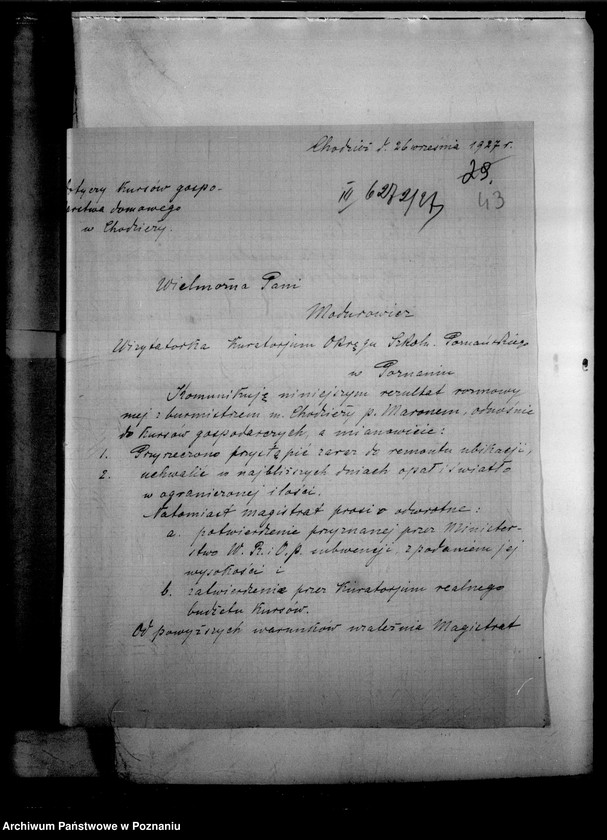 Chodzież d. 26 września 1927 r.
29.
43
III 6272/27
dotyczy Kursów gospo-
darstwa domowego
w Chodzieży.
Wielmożna Pani
Modurowicz
Wizytatorka Kuratorjum Okręgu Szkoln. Poznańskiego
w Poznaniu
Komunikuję niniejszym rezultat rozmowy
mej z burmistrzem m. Chodzieży p. Maronem, odnośnie
do Kursów gospodarczych, a mianowicie:
1. Przyrzeczono przystąpić zaraz do remontu ubikacji,
2. uchwalić w najbliższych dniach opał i światło
w ograniczonej ilości.
Natomiast magistrat prosi o odwrotne:
a. potwierdzenie przyznanej przez Minister-
stwo W. R. i O. p. subwencji z podaniem jej
wysokości i
b. zatwierdzenie przez Kuratorjum realnego
budżetu Kursów.
Od powyższych warunków uzależnia Magistrat
Archiwum Państwowe w Poznaniu